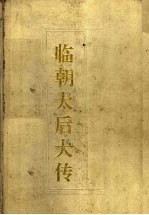 临朝太后大传